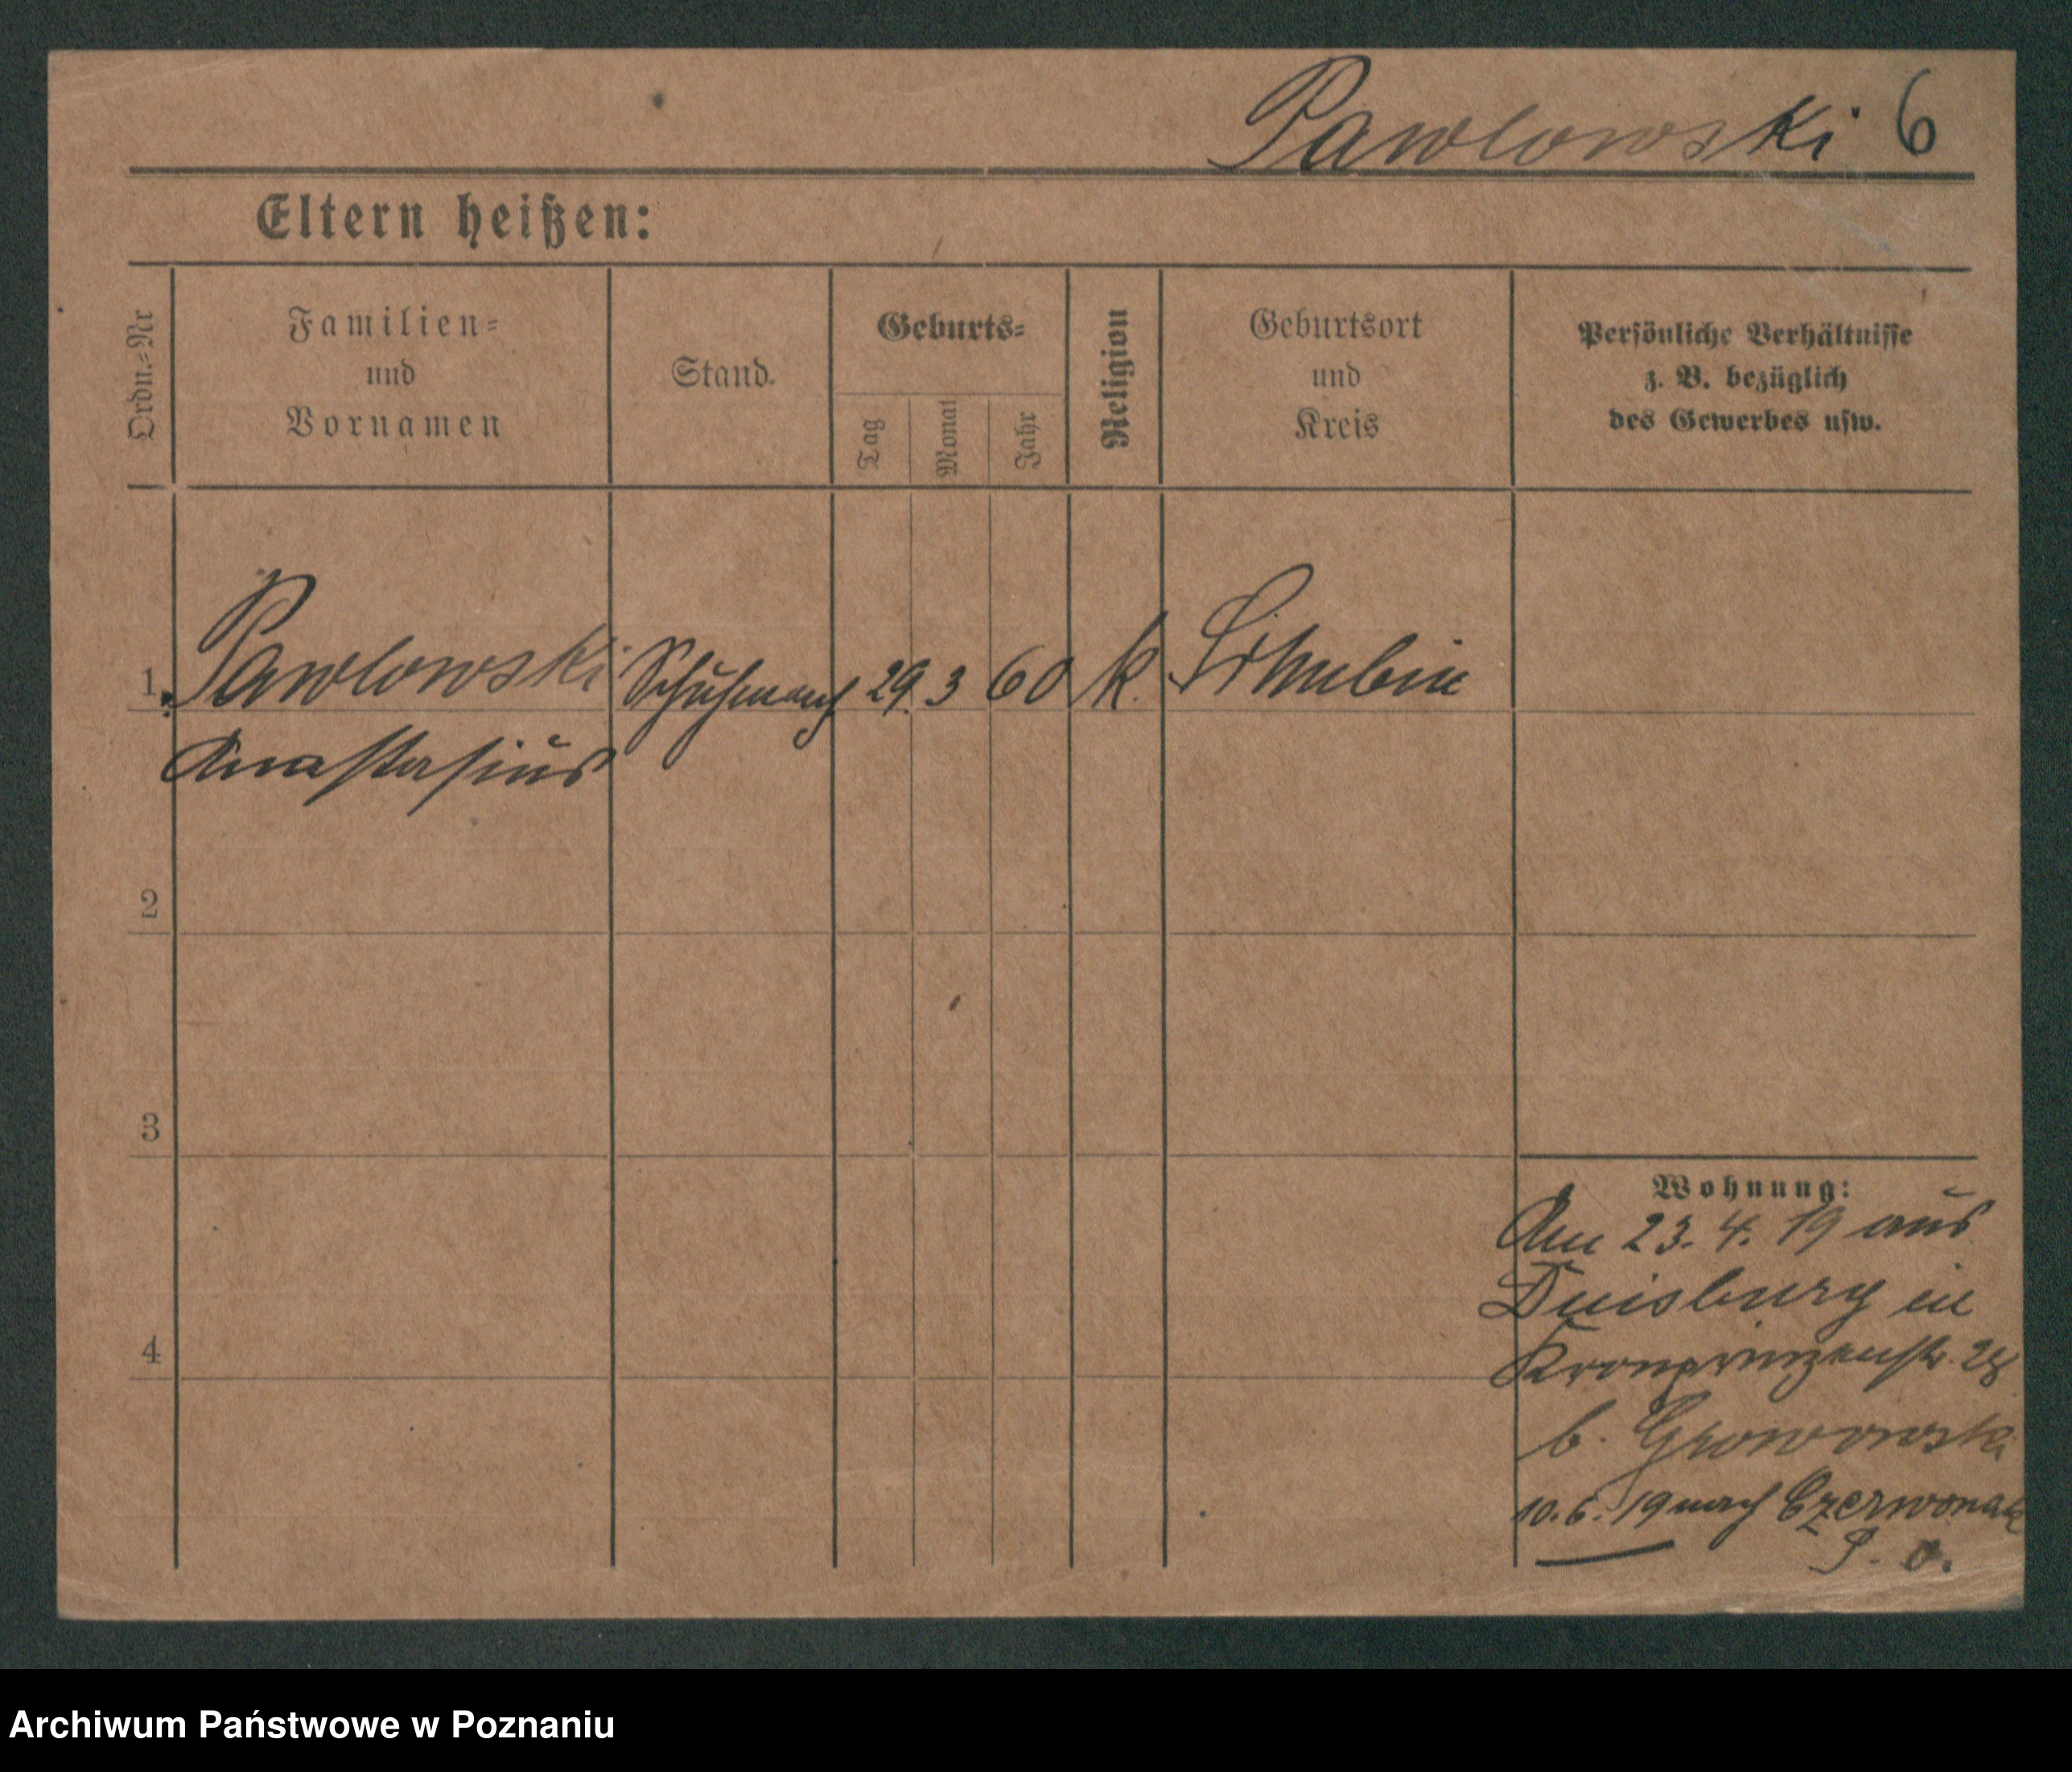 Pawlowski 6
Eltern heißen:
Ordn.=Nr
Familien=
und
Vornamen
Stand.
Geburts=
Tag
Monat
Jahr
Religion
Geburtsort
und
Kreis
Persönliche Verhältnisse
z. B. bezüglich
des Gewerbes usw.
1. Pawlowski Schuhmach 29. 3 60 k. Schubin
Anastasius
2
3
Wohnung:
Am 23. 4. 19 aus
Duisburg in
4
Kronprinzenstr. 28
b.
10. 6. 19 nach Czerwonak
P. O.
Archiwum Państwowe w Poznaniu